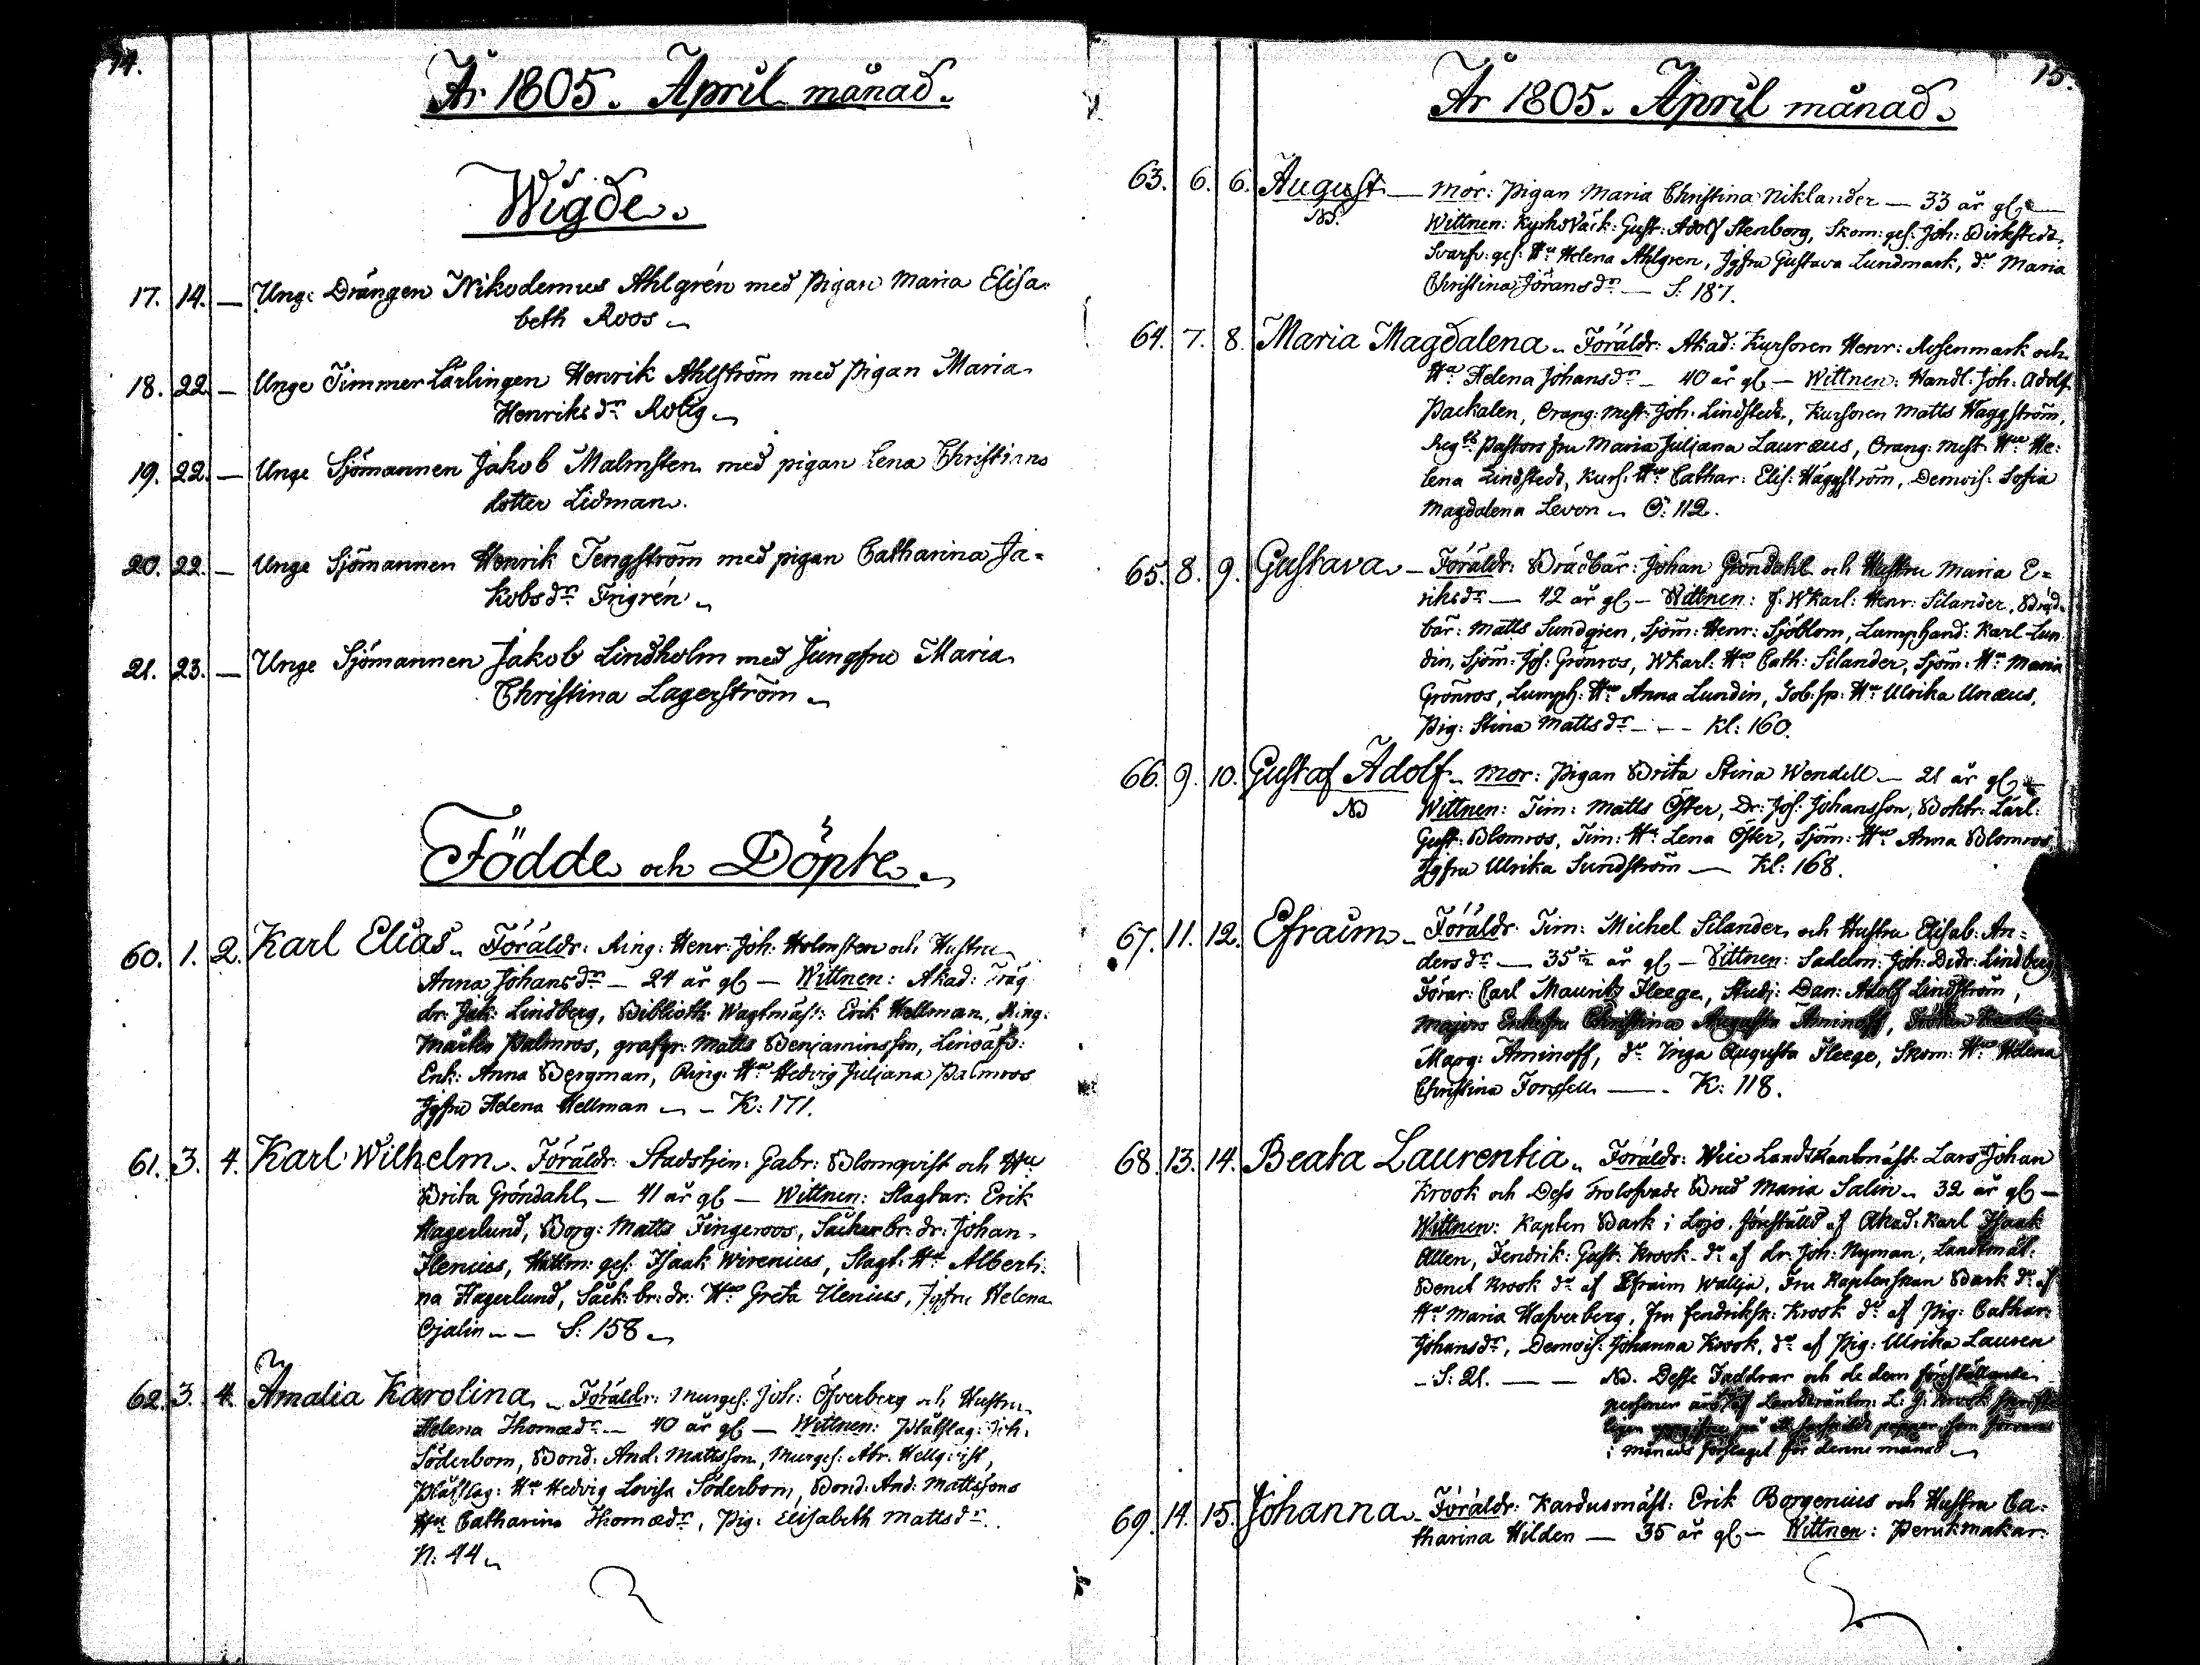 14.
År 1805. April månad.
Wigde.
17. 14. — Unge Drängen Nikodemus Ahlgrén med Pigan Maria Elisa=
beth Roos
18. 22. — Unge Timmer Lärlingen Henrik Ahlström med Pigan Maria
Henriksdr Rolig
19. 22. — Unge Sjömannen Jakob Malmsten med pigan Lena Christians
dotter Lidman.
20. 22. — Unge Sjömannen Henrik Tengström med pigan Catharina Ja=
kobsdr Frigrén
21. 23. — Unge Sjömannen Jakob Lindholm med Jungfru Maria
Christina Lagerström
Födde och Döpte
60. 1. 2. Karl Elias Föräldr: Ring: Henr: Joh: Holmsten och Hustru
Anna Johansdr — 24 år gl — Wittnen: Akad:
dr: Jak: Lindberg, Biblioth: Wagtmäst: Erik Hellman, Ring:
Palmros, Matts Benjaminsson,
Enk: Anna Bergman, Ring: Hu Hedvig Juliana Palmros
Jgfru Helena Hellman — K: 171.
61. 3. 4. Karl Wilhelm Föräldr: Stadstjen: Gabr: Blomqvist och Hu
Brita Gröndahl — 41 år gl — Wittnen: Slagtar: Erik
Hagerlund, Borg: Matts Fingeroos, Sackerbr: dr: Johan
Ilenius, ges: Isaak Wirenius, Slagt: Hu Alberti:
na Hagerlund, Sack: br: dr: Hu Greta Ilenius, Jgfru Helena
Ojalin — S: 158
62. 3. 4. Amalia Karolina Föräldr: Murges: Joh: Öfverberg och Hustru
Helena Thomædr — 40 år gl — Wittnen: Plåtslag: Joh:
Söderbom, Bond: And: Mattsson, Murges: Abr: Hellqvist,
Plåtslag: Hu Hedvig Lovisa Söderbom, Bond: And: Mattssons
Hu Catharina Thomædr, Pig: Elisabeth Mattsdr
N: 44
15.
År 1805. April månad.
63. 6. 6. August — Mor: Pigan Maria Christina Niklander — 33 år gl
NB. Wittnen: Gust: Adolf Stenborg, Skom: ges: Joh: Birkstedt,
Svarfv: ges: Hu Helena Ahlgren, Jgfru Gustava Lundmark, do Maria
Christina Göransdr — S: 187.
64. 7. 8. Maria Magdalena Föräldr: Akad: Kursoren Henr: Rosenmark och
Hu Helena Johansdr — 40 år gl — Wittnen: Handl: Joh: Adolf
Packalen, Orang: mest: Joh: Lindstedt, Kursoren Matts Häggström,
Pastors fru Maria Juliana Lauræus, Orang: mest: Hu He:
lena Lindstedt, Kurs: Hu Cathar: Elis: Häggström, Demois: Sofia
Magdalena Levon — O: 112.
65. 8. 9. Gustava — Föräldr: Brädbär: Johan Gröndahl och Hustru Maria E=
riksdr — 42 år gl — Wittnen: f. Wkarl: Henr: Silander, Bräd=
bär: Matts Sundgren, Sjöm: Henr: Sjöblom, Lumphand: Karl Lun
din, Sjöm: Jos: Grönros, Wkarl: Hu Cath: Silander, Sjöm: Hu Maria
Grönros, Lumph: Hu Anna Lundin, Tob: sp: Hu Ulrika Unæus,
Pig: Stina Mattsdr — Kl: 160.
66. 9. 10. Gustaf Adolf Mor: Pigan Brita Stina Wendell — 21 år gl
NB Wittnen: Tim: Matts Öster, Dr: Jos: Johansson, Boktr: Lärl:
Gust: Blomros, Tim: Hu Lena Öster, Sjöm: Hu Anna Blomros
Jgfru Ulrika Sundström — Kl: 168.
67. 11. 12. Efraim — Föräldr: Tim: Michel Silander och Hustru Elisab: An=
dersdr — 35 1/2 år gl — Wittnen: Sadelm: Joh: Didr: Lindberg
Förar: Carl Mauritz Fleege, Stud: Dan: Adolf Lindström,
Majors Enkefru Christina Augusta Aminoff, Fröken
Marg: Aminoff, do Inga Augusta Fleege, Skom: Hu Helena
Christina Forssell — K: 118.
68. 13. 14. Beata Laurentia Föräldr: Wice Landskamrmäst: Lars Johan
Krook och Dess Trolofvade Brud Maria Salin — 32 år gl —
Wittnen: Kapten Bark i Lojo föreställd af Akad: Karl Isaak
Allen, Fendrik: Gust: Krook do af dr: Joh: Nyman, Landtmät:
Benct Krook do af Efraim Wallja, Fru Kaptenskan Bark do af
Hu Maria Hafverberg, Fru Fendriksk: Krook do af Pig: Cathar:
Johansdr, Demois: Johanna Krook, do af Pig: Ulrika Lauren
— S: 21. — NB. Desse Faddrar och de dem föreställande
personer af L: J: Krook
i månads förslaget för denne månad
69. 14. 15. Johanna Föräldr: Kardusmäst: Erik Borgenius och Hustru Ca:
tharina Hilden — 35 år gl — Wittnen: Perukmakar: